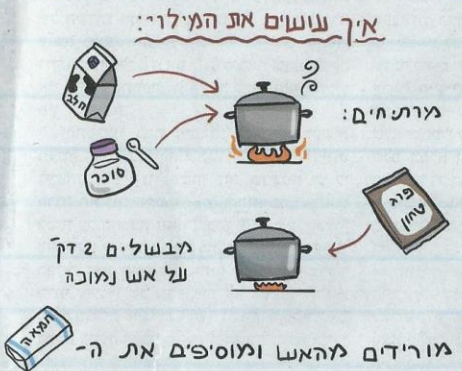 איך עושים את המילוי:
חלב
מרתיחים:
סוכר
פרג
טחון
מבשלים 2 דק'
על אש נמוכה
חמאה
מורידים מהאש ומוסיפים את ה-